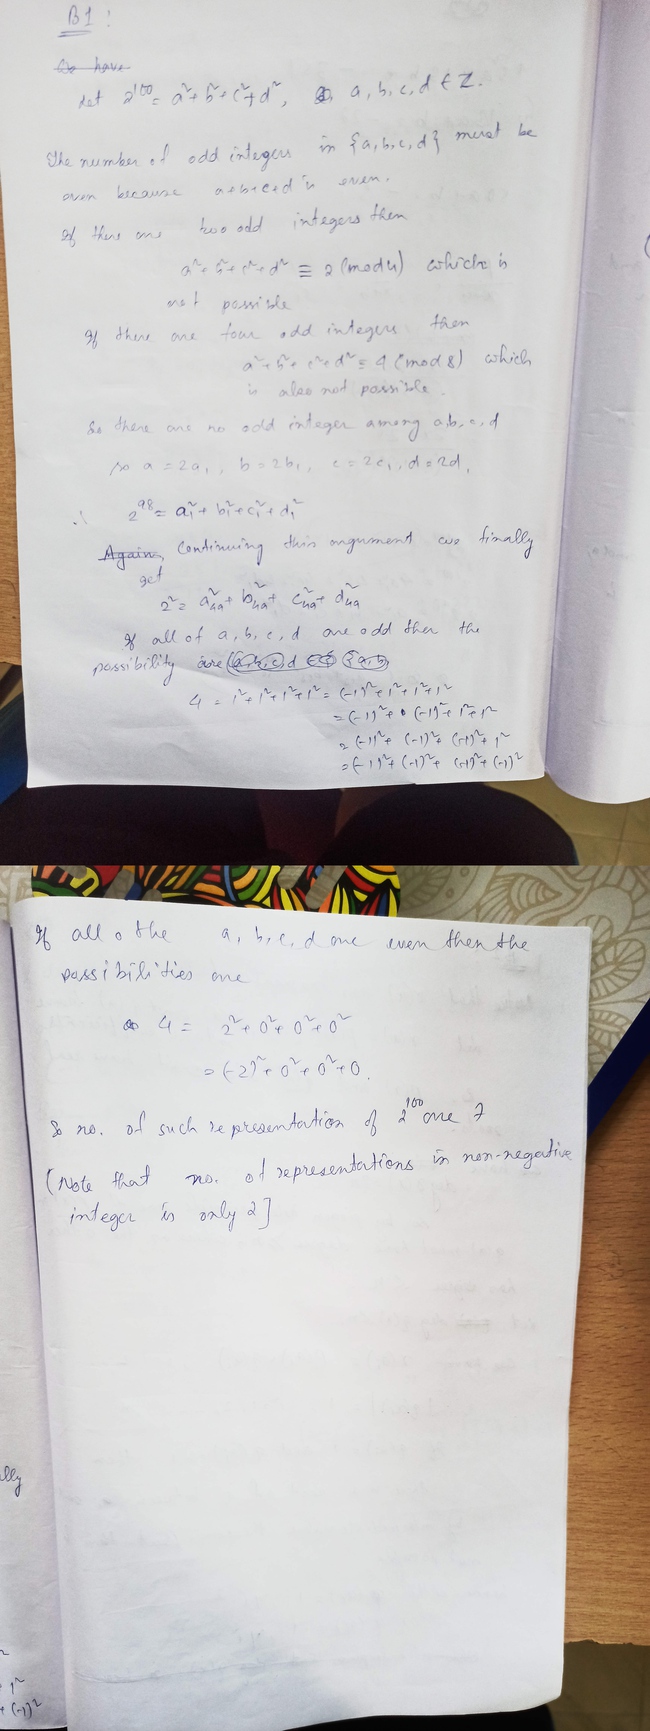 B1 :
We have
Let 2^100 = a² + b² + c² + d², a, b, c, d ∈ Z.
The number of odd integers in {a, b, c, d} must be
even because a+b+c+d is even.
If there are two odd integers then
a² + b² + c² + d² ≡ 2 (mod 4) which is
not possible
If there are four odd integers then
a² + b² + c² + d² ≡ 4 (mod 8) which
is also not possible.
So there are no odd integer among a, b, c, d
so a = 2a₁, b = 2b₁, c = 2c₁, d = 2d₁
∴ 2^98 = a₁² + b₁² + c₁² + d₁²
Again, Continuing this argument we finally
get
2² = a₄₉² + b₄₉² + c₄₉² + d₄₉²
If all of a, b, c, d are odd then the
possibility are (a, b, c, d ∈ {a, b,
4 = 1² + 1² + 1² + 1² = (-1)² + 1² + 1² + 1²
= (-1)² + (-1)² + 1² + 1²
= (-1)² + (-1)² + (-1)² + 1²
= (-1)² + (-1)² + (-1)² + (-1)²
If all o the a, b, c, d are even then the
possibilities are
4 = 2² + 0² + 0² + 0²
= (-2)² + 0² + 0² + 0.
So no. of such representation of 2^100 are 7
(Note that no. of representations in non-negative
integer is only 2]
lly
1²
+ (-1)²